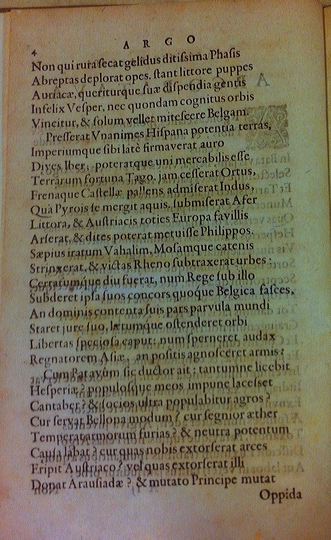 4
ARGO
Non qui rura secat gelidus ditissima Phasis
Abreptas deplorat opes. stant littore puppes
Austriacæ, queriturque suæ dispendia gentis
Infelix Vesper, nec quondam cognitus orbis
Vincitur, & solum vellet mitescere Belgam.
Presserat Vnanimes Hispana potentia terras,
Imperiumque sibi latè firmaverat auro
Dives Iber, poteratque uni mercabilis esse,
Terrarum fortuna Tago. jam cesserat Ortus,
Frenaque Castellæ pallens admiserat Indus,
Quà Pyrois se mergit aquis. submiserat Afer
Littora, & Austriacis toties Europa favillis
Arserat, & dites poterat metuisse Philippos.
Sæpius iratum Vahalim, Mosamque catenis
Strinxerat, & victas Rheno subtraxerat urbes:
Certatumque diu fuerat, num Rege sub illo
Subderet ipsa suos concors quoque Belgica fasces,
An dominis contenta suis pars parvula mundi
Staret jure suo, lætumque ostenderet orbi
Libertas speciosa caput: num sperneret audax
Regnatorem Asiæ, an positis agnosceret armis?
Cum Patavûm sic ductor ait: tantumne licebit
Hesperiæ? populosque meos impune lacesset
Cantaber? & socios ultra populabitur agros?
Cur servat Bellona modum? cur segnior æther
Temperat armorum furias? & neutra potentum
Causa labat? cur quas nobis extorserat arces
Eripit Austriaco? vel quas extorserat illi
Donat Arausiadæ? & mutato Principe mutat
Oppida